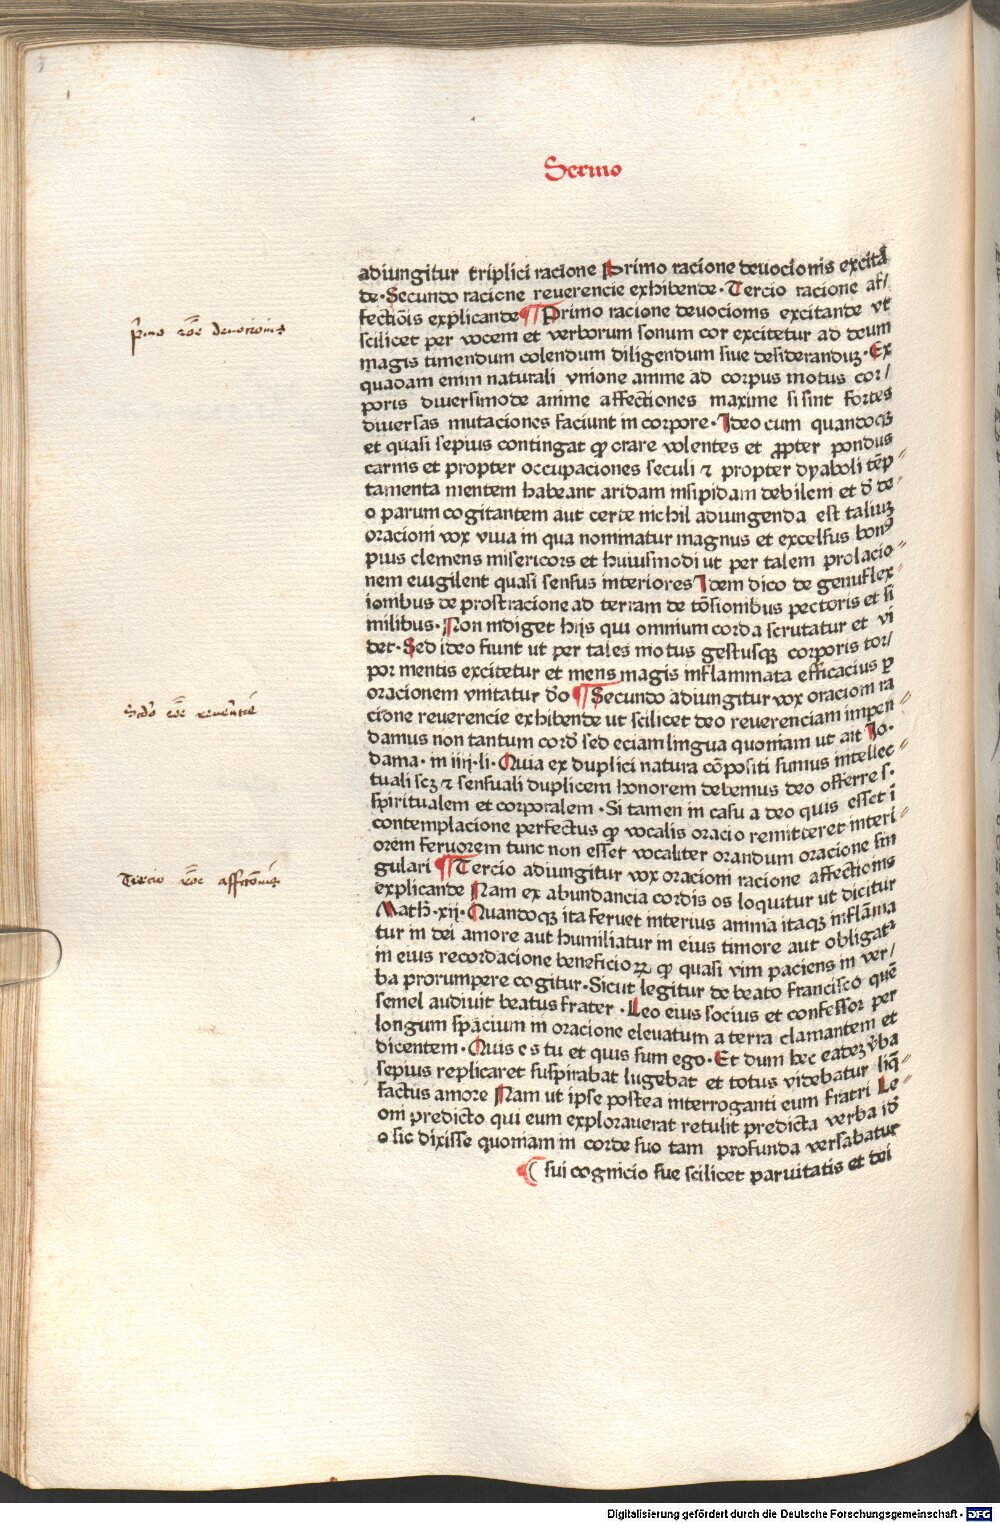 Sermo
adiungitur triplici racione Primo racione deuocionis excitā
de·Secundo racione reuerencie exhibende·Tercio racione af/
fectiōis explicande ¶Primo racione deuocionis excitande vt
primo rōe deuotionis
scilicet per vocem et verborum sonum cor excitetur ad deum
magis timendum colendum diligendum siue desideranduꝫ·Ex
quadam enim naturali vnione anime ad corpus motus cor/
poris diuersimode anime affectiones maxime si sint fortes
diuersas mutaciones faciunt in corpore·Ideo cum quandoqꝫ
et quasi sepius contingat ꝙ orare volentes et ꝓpter pondus
carnis et propter occupaciones seculi ⁊ propter dyaboli tēp⸗
tamenta mentem habeant aridam insipidam debilem et d̄ de⸗
o parum cogitantem aut certe nichil adiungenda est taliuꝫ
oracioni vox viua in qua nominatur magnus et excelsus bonꝰ
pius clemens misericors et huiusmodi ut per talem prolacio⸗
nem euigilent quasi sensus interiores Idem dico de genuflex⸗
ionibus de prostracione ad terram de tōsionibus pectoris et si
milibus·Non indiget hijs qui omnium corda scrutatur et vi
det·Sed ideo fiunt ut per tales motus gestusqꝫ corporis tor/
por mentis excitetur et mens magis inflammata efficacius ꝑ
oracionem vnitatur dō ¶Secundo adiungitur vox oracioni ra
Scd̄o rōe reuerētie
cione reuerencie exhibende ut scilicet deo reuerenciam impen⸗
damus non tantum cord̄ sed eciam lingua quoniam ut ait Jo·
dama·in iiij·li·Quia ex duplici natura cōpositi sumus intellec⸗
tuali scꝫ ⁊ sensuali duplicem honorem debemus deo offerre s·
spiritualem et corporalem·Si tamen in casu a deo quis esset ī
contemplacione perfectus ꝙ vocalis oracio remitteret interi⸗
orem feruorem tunc non esset vocaliter orandum oracione sin
gulari ¶Tercio adiungitur vox oracioni racione affectionis
Tercio rōe affectōnis
explicande Nam ex abundancia cordis os loquitur ut dicitur
Math·xij·Quandoqꝫ ita feruet interius anima itaqꝫ inflāma
tur in dei amore aut humiliatur in eius timore aut obligat᷑
in eius recordacione beneficioꝝ ꝙ quasi vim paciens in ver/
ba prorumpere cogitur·Sicut legitur de beato francisco quē
semel audiuit beatus frater·Leo eius socius et confessor per
longum spacium in oracione eleuatum a terra clamantem et
dicentem·Quis es tu et quis sum ego·Et dum hec eadeꝫ v̄ba
sepius replicaret suspirabat lugebat et totus videbatur liq̄⸗
factus amore Nam ut ipse postea interroganti eum fratri Le⸗
oni predicto qui eum explorauerat retulit predicta verba id̄
o sic dixisse quoniam in corde suo tam profunda versabatur
¶ sui cognicio sue scilicet paruitatis et dei
Digitalisierung gefördert durch die Deutsche Forschungsgemeinschaft - DFG